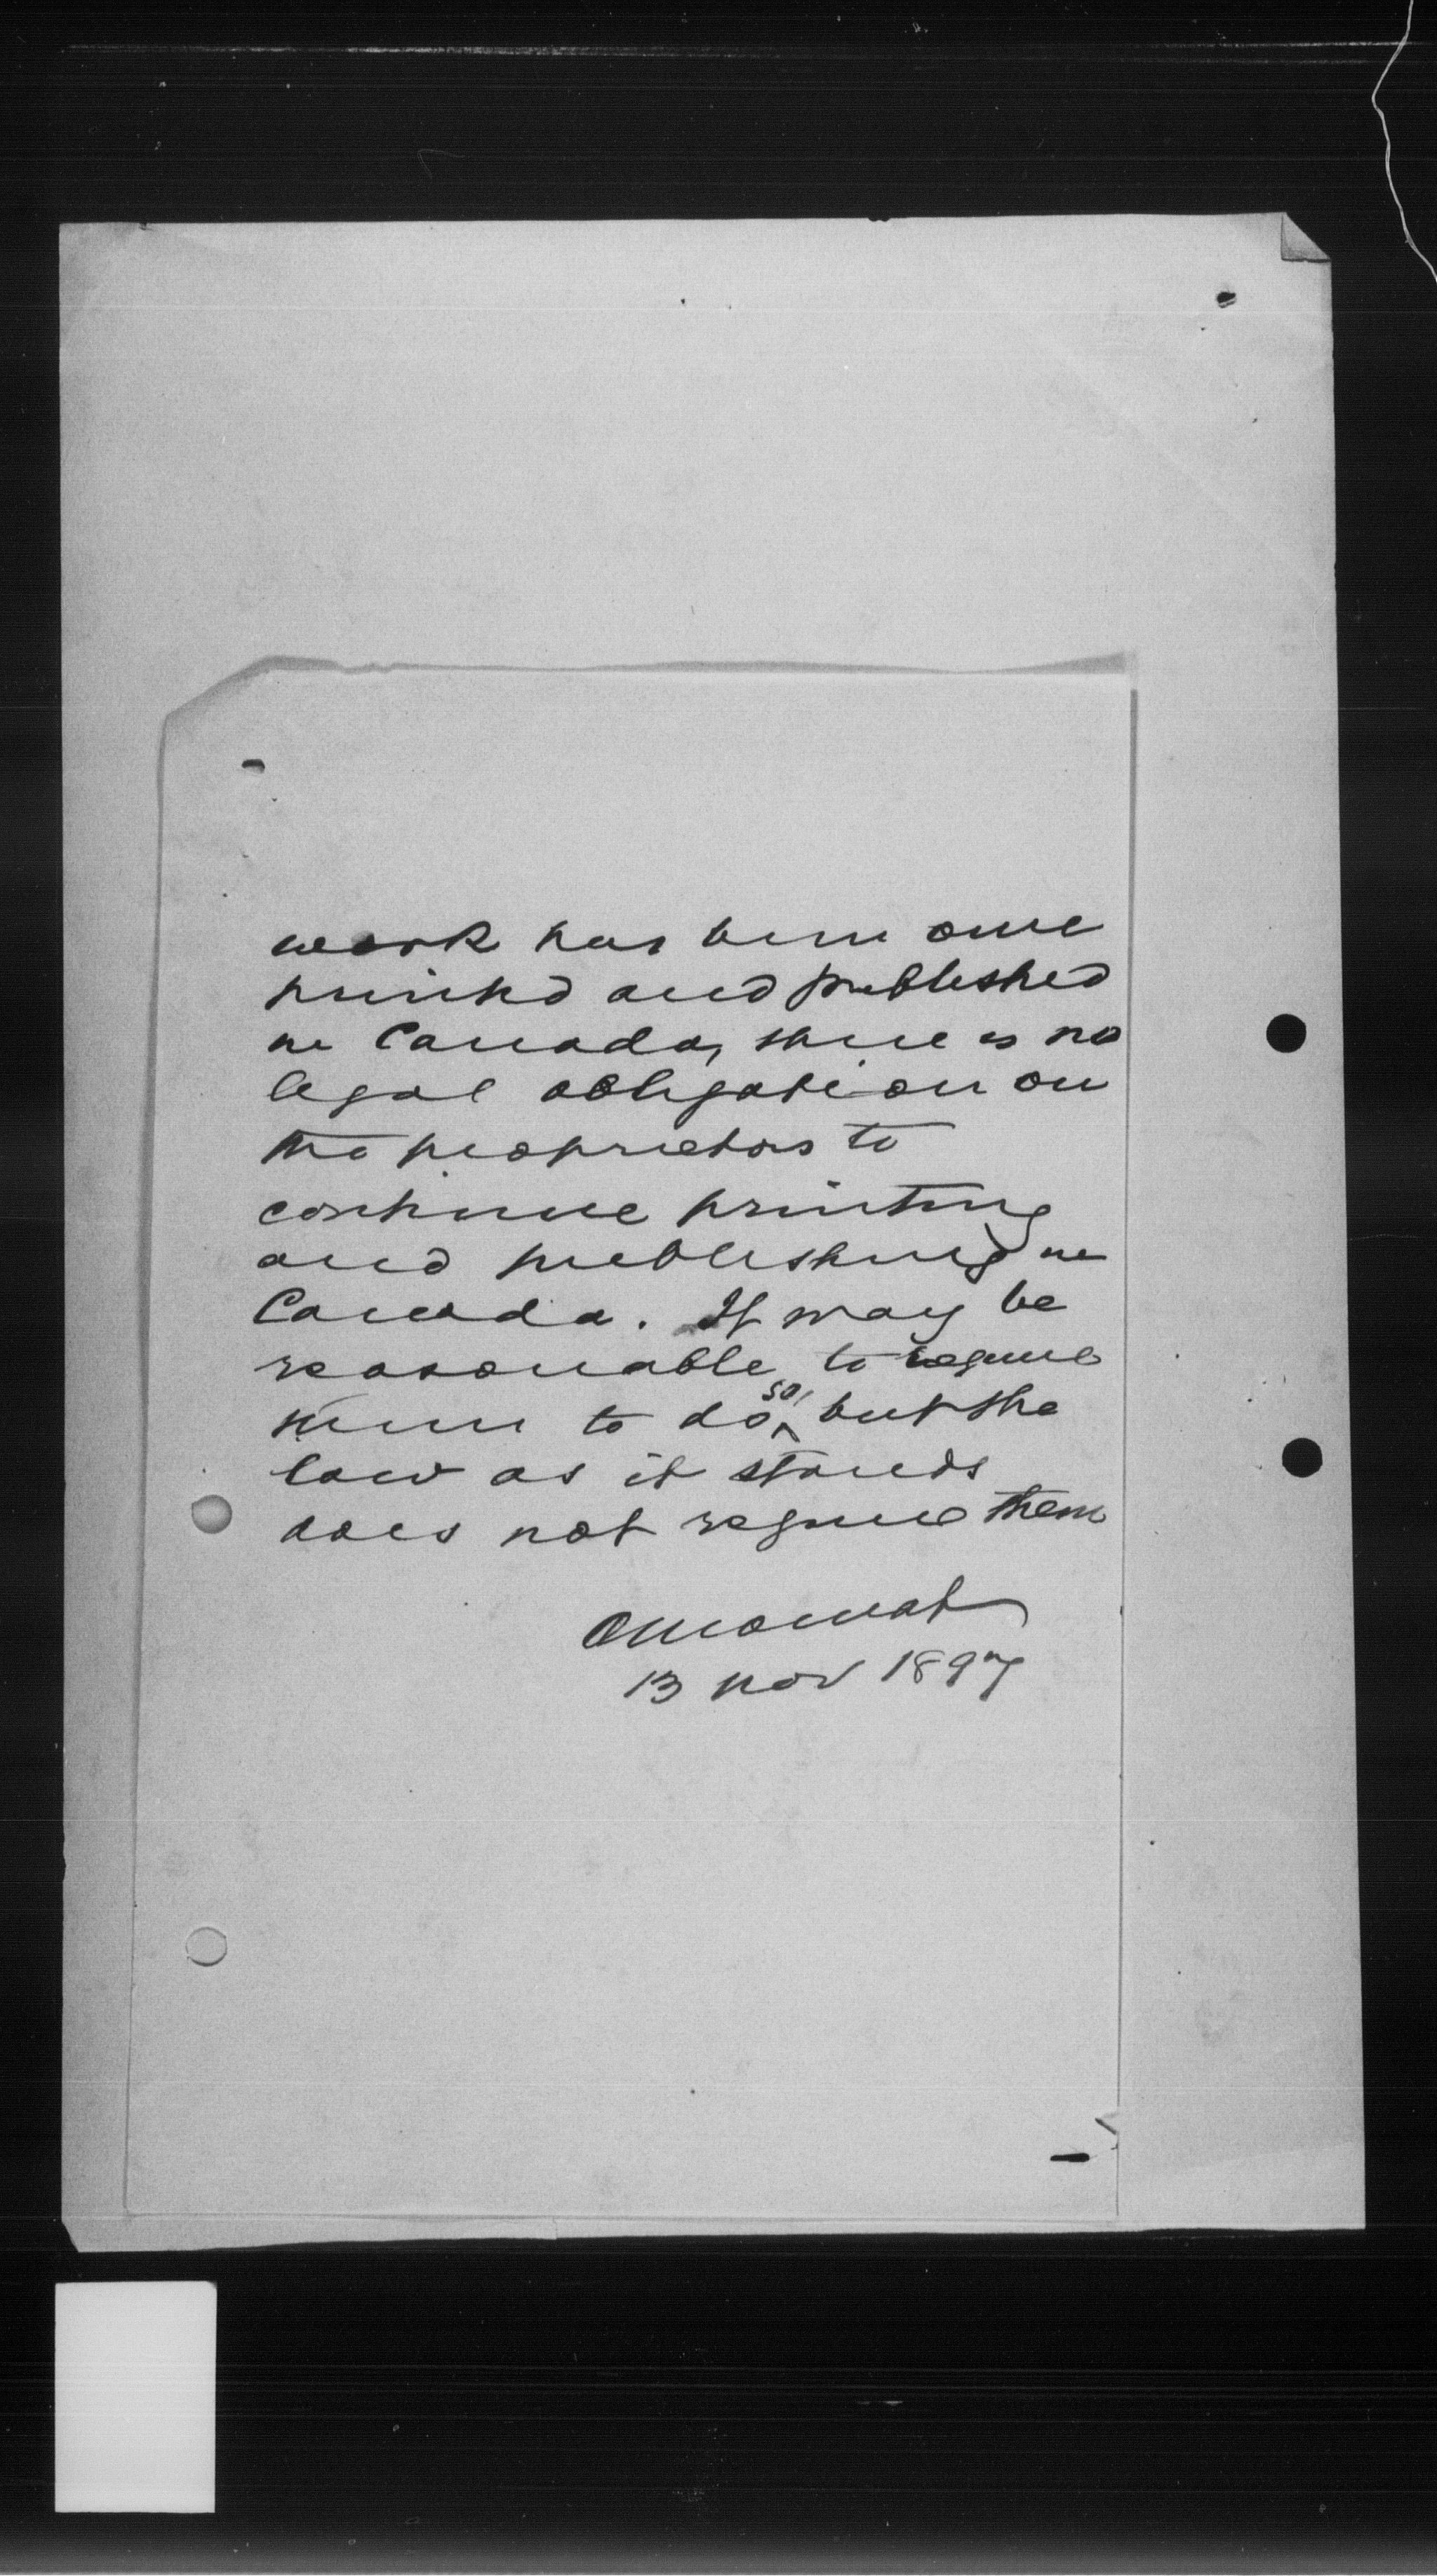 work has been once
printed and published
in Canada, there is no
legal obligation on
the proprietors to
continue printing
and publishing in
Canada. It may be
reasonable to require
them to do so, but the
law as it stands
does not require them
O Mowat
13 Nov 1897